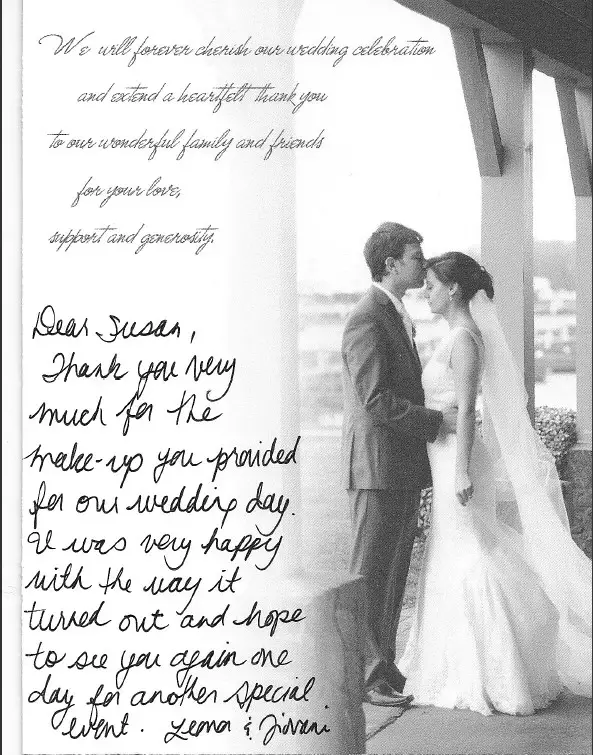 We will forever cherish our wedding celebration
and extend a heartfelt thank you
to our wonderful family and friends
for your love,
support and generosity.
Dear Susan,
Thank you very
much for the
make-up you provided
for our wedding day.
I was very happy
with the way it
turned out and hope
to see you again one
day for another special
event. Leona & Jiovani